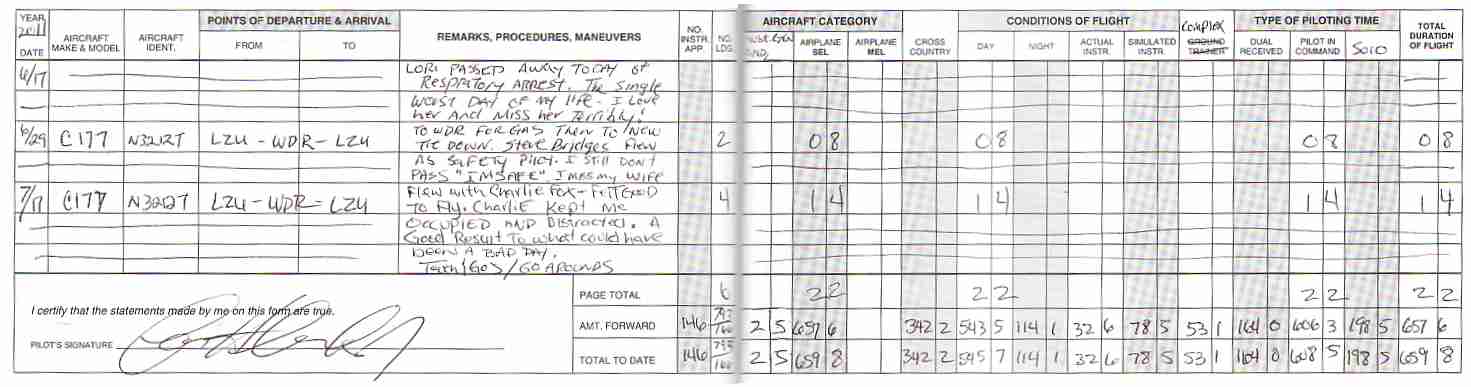 YEAR 2011 DATE AIRCRAFT MAKE & MODEL AIRCRAFT IDENT. POINTS OF DEPARTURE & ARRIVAL FROM TO REMARKS, PROCEDURES, MANEUVERS NO. INSTR. APP. NO. LDG. AIRCRAFT CATEGORY AIRPLANE SEL AIRPLANE MEL CROSS COUNTRY CONDITIONS OF FLIGHT DAY NIGHT ACTUAL INSTR. SIMULATED INSTR. COMPLEX GROUND TRAINER TYPE OF PILOTING TIME DUAL RECEIVED PILOT IN COMMAND SOLO TOTAL DURATION OF FLIGHT
6/17 LORI PASSED AWAY TODAY of
RESPIRATORY ARREST. The Single
WORST DAY OF my life - I Love
her And Miss her Terribly!
6/29 C177 N3212T LZU - WDR - LZU TO WDR FOR GAS Then To New 2 0 8 0 8 0 8 0 8
TIE DOWN. Steve Bridges Flew
AS SAFETY Pilot. I STILL DON'T
PASS "IMSAFE" I miss my WIFE
7/17 C177 N3212T LZU - WDR - LZU Flew with Charlie Fox - Felt GOOD 4 1 4 1 4 1 4 1 4
TO Fly. Charlie Kept Me
OCCUPIED AND DISTRACTED. A
Good Result To what could have
BEEN A BAD DAY.
GO AROUNDS
PAGE TOTAL 6 2 2 2 2 2 2 2 2
I certify that the statements made by me on this form are true.
AMT. FORWARD 146 2 5 657 6 342 2 543 5 114 1 32 6 78 5 53 1 164 0 606 3 198 5 657 6
PILOT'S SIGNATURE
TOTAL TO DATE 146 2 5 659 8 342 2 545 7 114 1 32 6 78 5 53 1 164 0 608 5 198 5 659 8